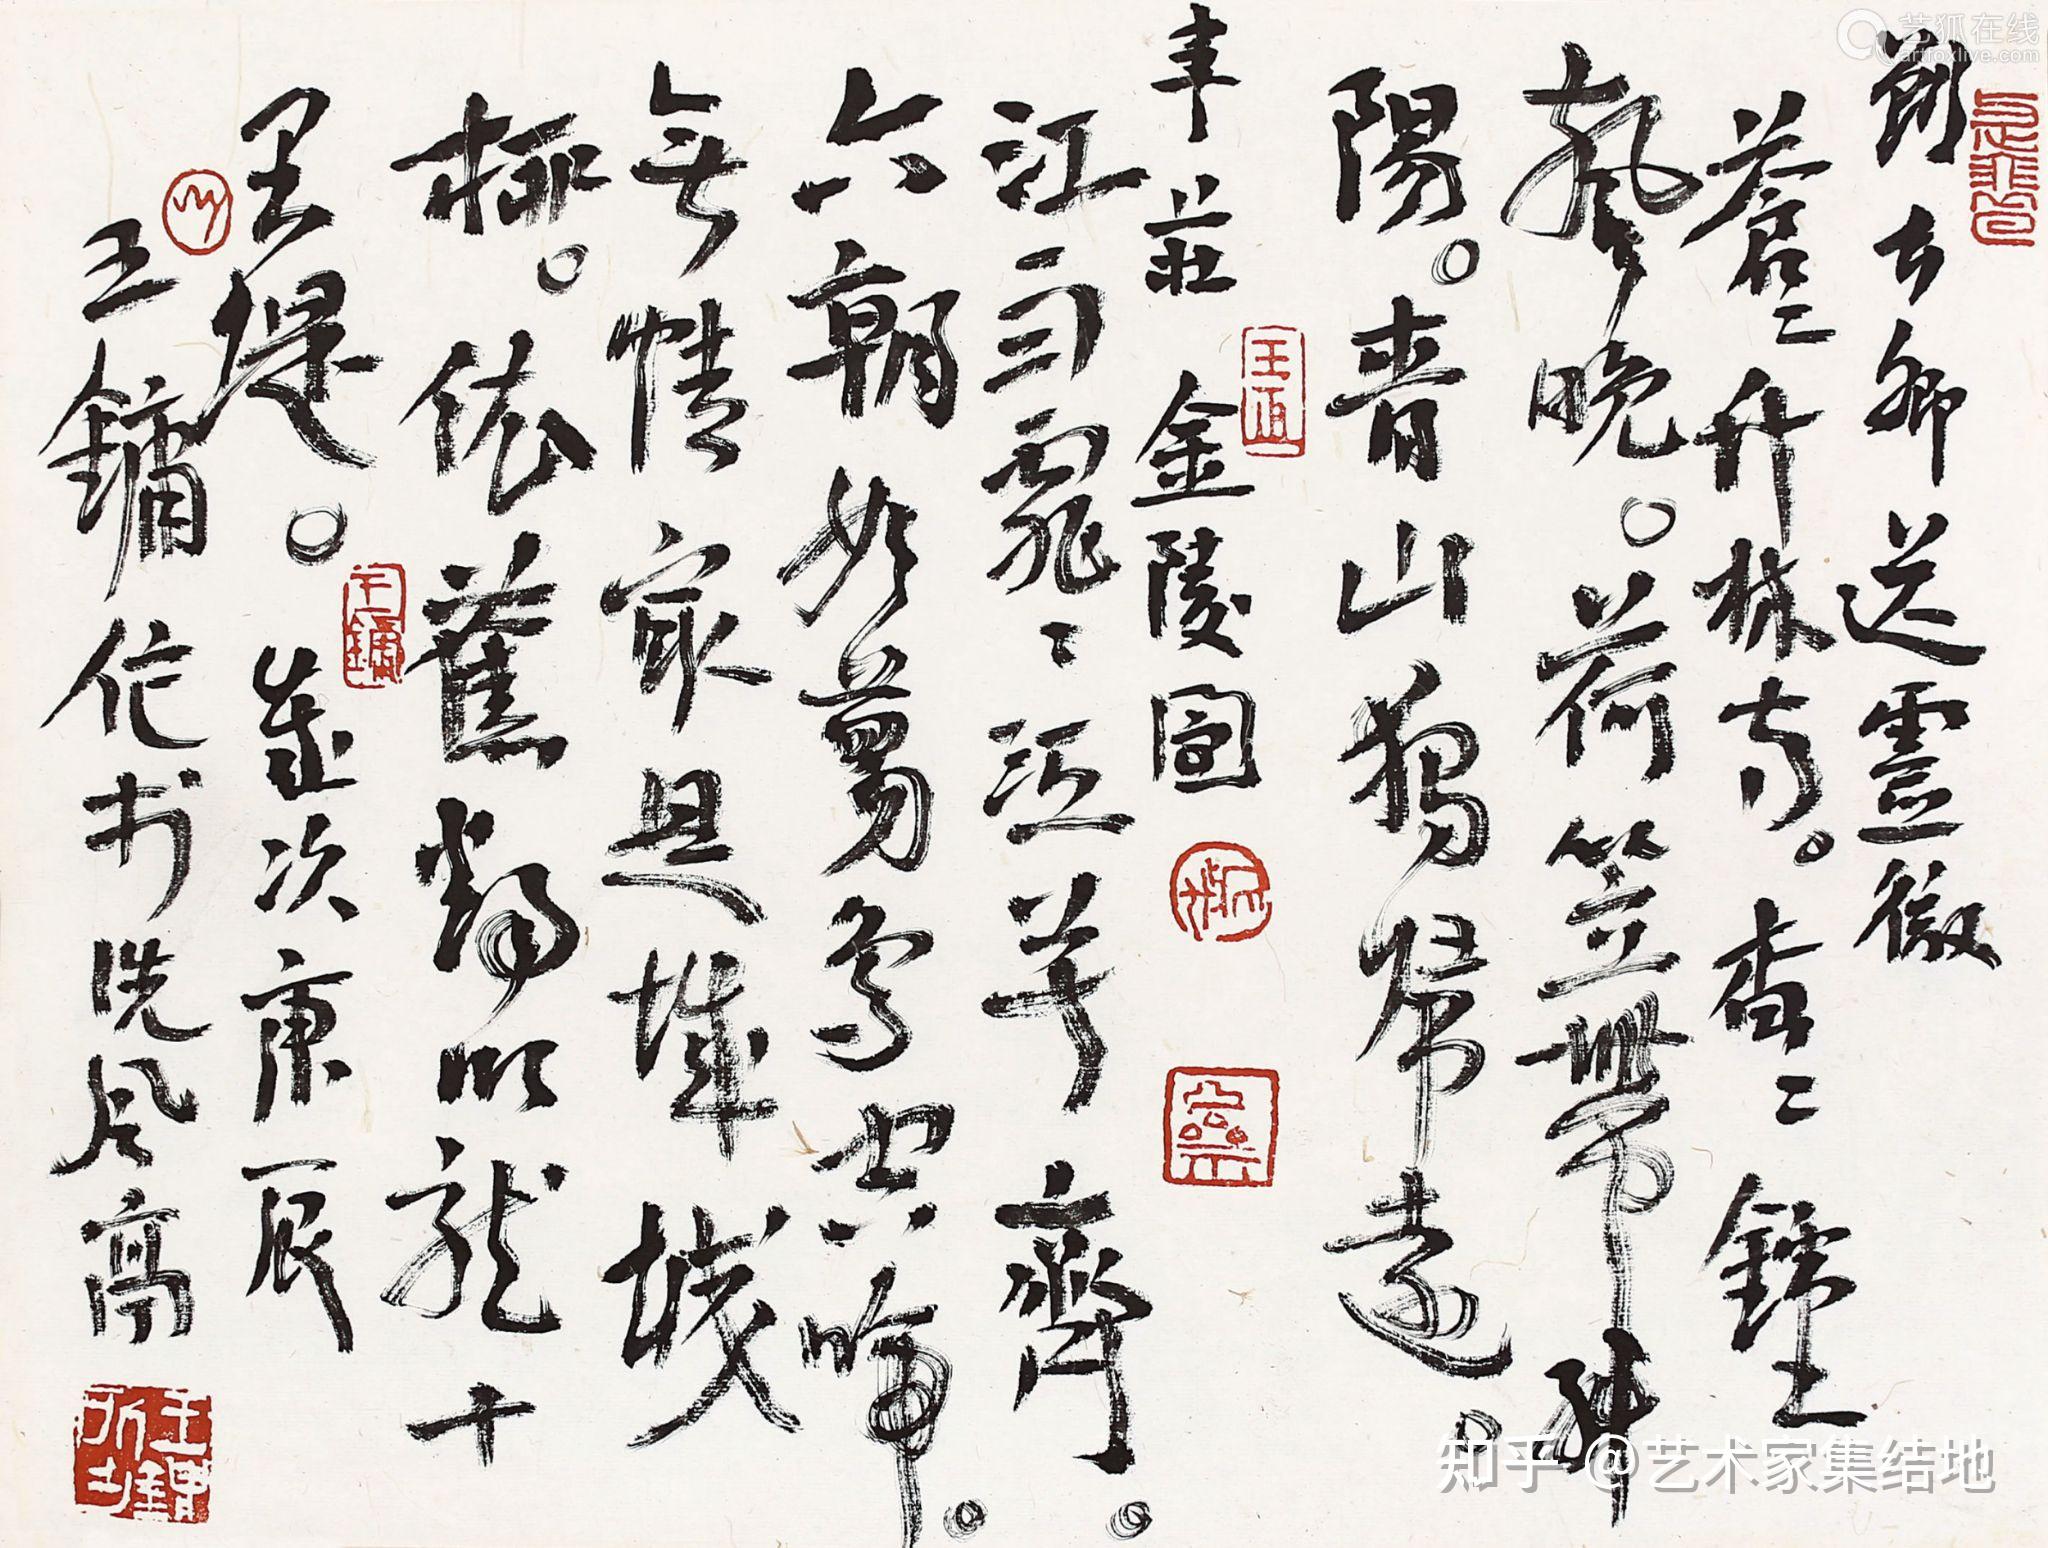 艺狐在线
artfoxlive.com
劉長卿送靈澈
蒼〻竹林寺。杳〻鐘
聲晚。荷笠帶斜
陽。青山獨歸遠。
韋莊 金陵圖
江雨霏〻江草齊。
六朝如夢鳥空啼。
無情最是臺城
柳。依舊煙籠十
里堤。歲次庚辰
王鏞
王鏞作书
知乎 @艺术家集结地